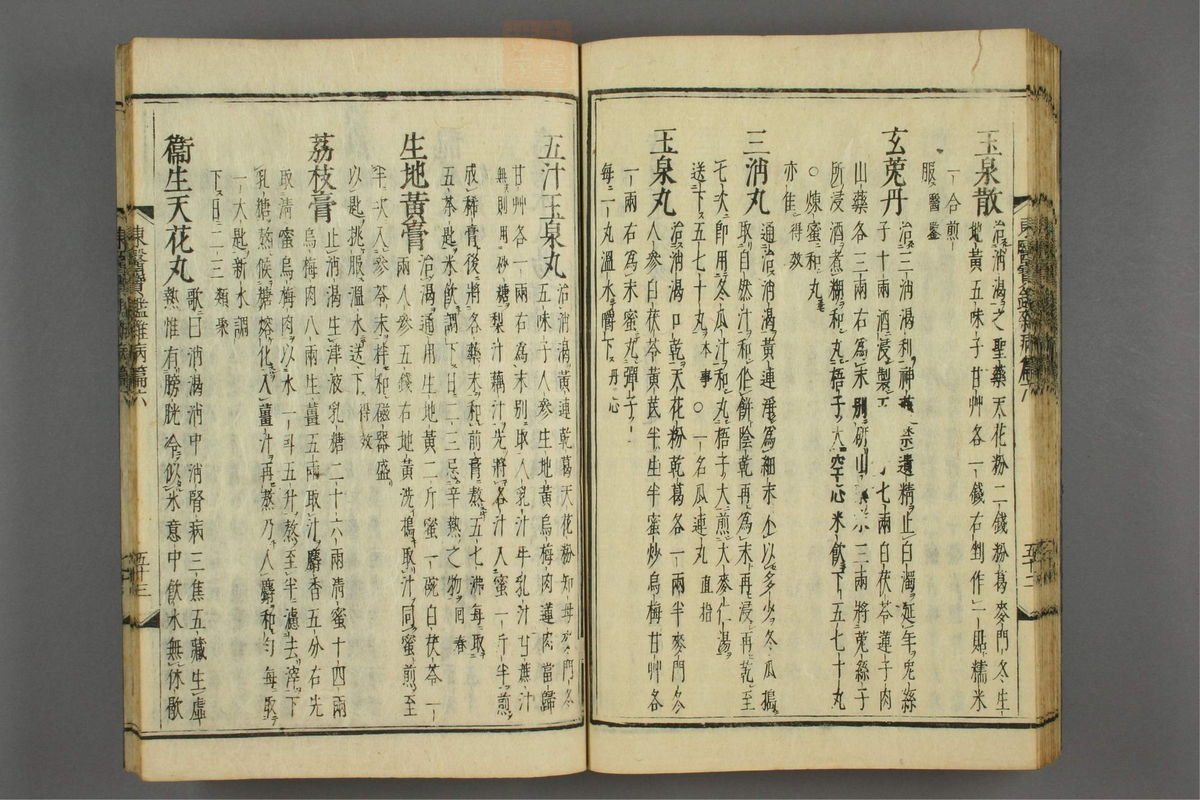 玉泉散 治消渴之聖藥天花粉二錢粉葛麥門冬生
地黃五味子甘艸各一錢右剉作一貼糯米
一合煎
服醫鑒
玄菟丹 治三消渴利神藥禁遺精止白濁延年兎絲
子十兩酒浸製 七兩白茯苓蓮子肉
山藥各三兩右爲末別硏山 三兩將菟絲子
所浸酒煮糊和丸梧子大空心米飮下五七十丸
○煉蜜和丸
亦佳得效
三消丸 通治消渴黃連淨爲細末不以多少冬瓜搗
取自然汁和作餠陰乾再爲末再浸再乾至
七次卽用冬瓜汁和丸梧子大煎大麥仁湯
送下五七十丸本事○一名瓜連丸直指
玉泉丸 治消渴口乾天花粉乾葛各一兩半麥門冬
人參白茯苓黃芪半生半蜜炒烏梅甘艸各
一兩右爲末蜜丸彈子
每一丸溫水嚼下丹心
東醫寶鑑雜病篇六
五十二
五汁玉泉丸 治消渴黃連乾葛天花粉知母麥門冬
五味子人參生地黃烏梅肉蓮肉當歸
甘艸各一兩右爲末別取人乳汁牛乳汁甘蔗汁
無則用砂糖梨汁藕汁先將各汁入蜜一斤半煎
成稀膏後將各藥末和前膏熬五七沸每取
五茶匙米飮調下日二三忌辛熱之物回春
生地黃膏 治渴通用生地黃二斤蜜一碗白茯苓一
兩人參五錢右地黃洗搗取汁同蜜煎至
半次入參苓末拌和磁器盛
以匙挑服溫水送下得效
荔枝膏 止消渴生津液乳糖二十六兩淸蜜十四兩
烏梅肉八兩生薑五兩取汁麝香五分右先
取淸蜜烏梅肉以水一斗五升熬至半濾去滓下
乳糖熬候糖熔化入薑汁再熬乃入麝和勻每取
一大匙新水調
下日二三類聚
衞生天花丸 歌曰消渴消中消腎病三焦五藏生虛
熱惟有膀胱冷似氷意中飮水無休歇
東醫寶鑑雜病篇六
五十三